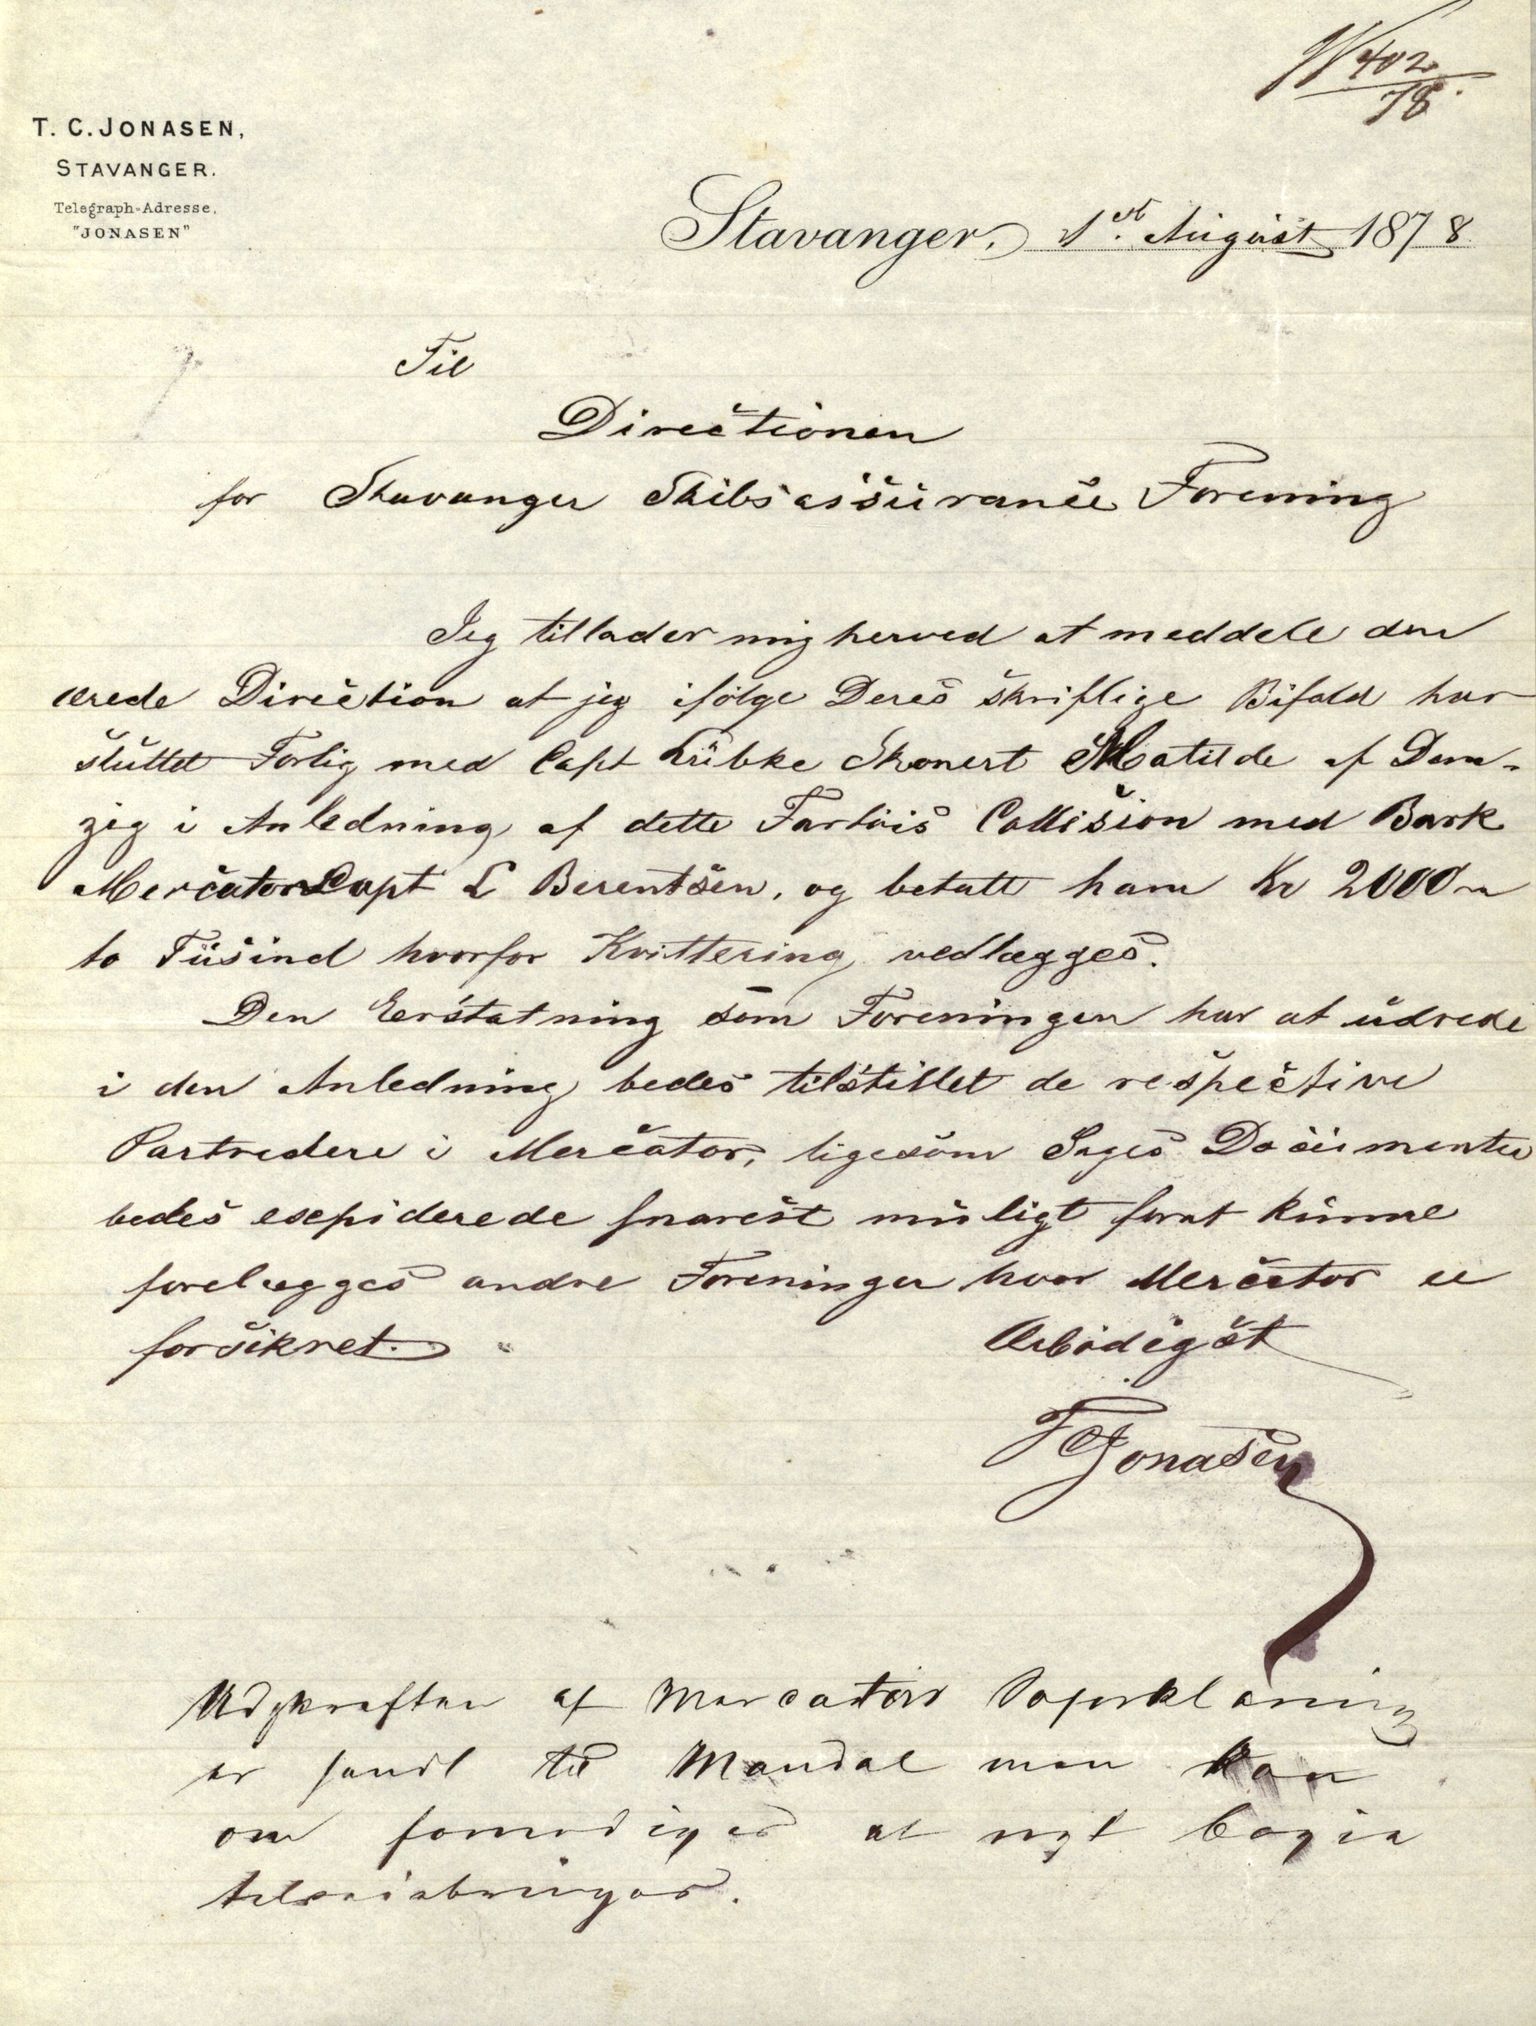 N 402
78.
T. C. JONASEN,
STAVANGER.
Telegraph-Adresse,
"JONASEN"
Stavanger, 1st August 1878
Til
Directionen
for Stavanger Skibsassurance Forening
Jeg tillader mig herved at meddele den
ærede Direction at jeg ifölge Deres skriftlige Bifald har
sluttet Forlig med Capt Lübke Skonert Matilde af Dan-
zig i Anledning af dette Fartöis Collision med Bark
Mercator Capt L Berentsen, og betalt ham Kr 2000
to Tusind hvorfor Kvittering vedlægges.
Den Erstatning som Foreningen har at udrede
i den Anledning bedes tilstillet de respective
Partredere i Mercator, ligesom Sages Documenter
bedes expiderede snarest muligt forat kunne
forelægges andre Foreninger hvor Mercator er
forsikret.
Ærbödigst
T C Jonasen
Udskriften af Mercators Söforklaring
er sendt til Mandal men kan
om fornödiges at nyt Copia
tilveiebringes.